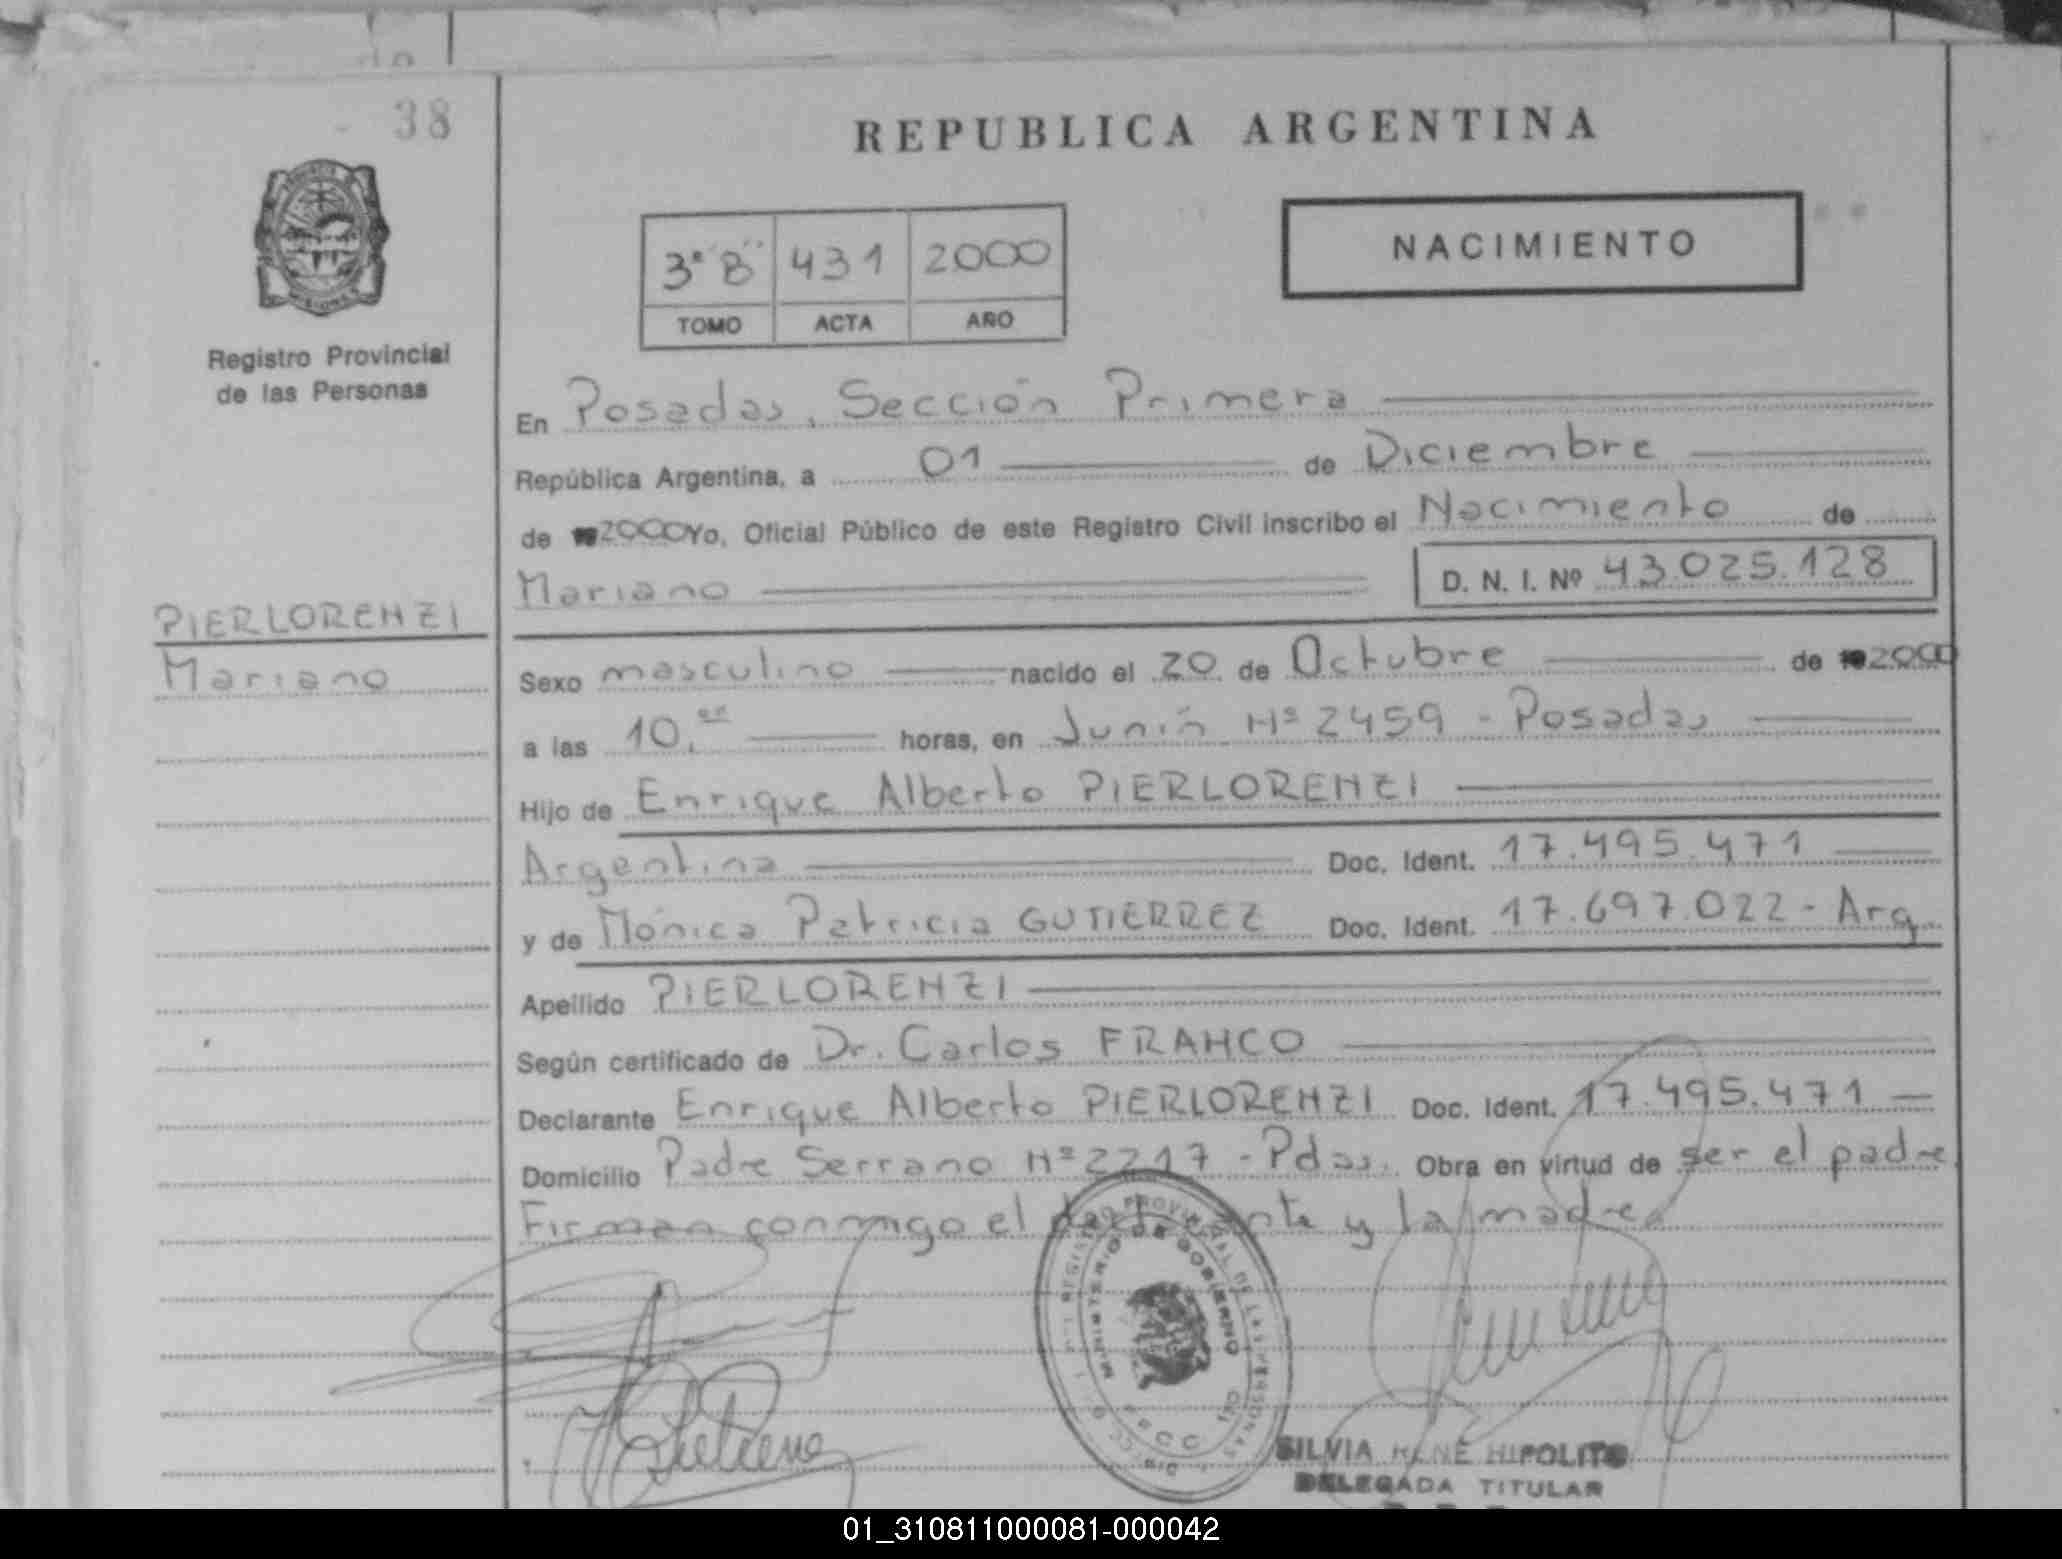 38
REPUBLICA ARGENTINA
NACIMIENTO
3º "B" 431 2000
TOMO ACTA AÑO
Registro Provincial
de las Personas
En Posadas, Sección Primera
República Argentina, a 01 de Diciembre
de 2000 Yo, Oficial Público de este Registro Civil inscribo el Nacimiento de
Mariano D. N. I. Nº 43.025.128
PIERLORENZI
Mariano
Sexo masculino nacido el 20 de Octubre de 2000
a las 10,00 horas, en Junín Nº 2459 - Posadas
Hijo de Enrique Alberto PIERLORENZI
Argentina Doc. Ident. 17.495.471
y de Mónica Patricia GUTIERREZ Doc. Ident. 17.697.022 - Arg.
Apellido PIERLORENZI
Según certificado de Dr. Carlos FRANCO
Declarante Enrique Alberto PIERLORENZI Doc. Ident. 17.495.471
Domicilio Padre Serrano Nº 2217 - Pdas. Obra en virtud de ser el padre
Firman conmigo el declarante y la madre.
REGISTRO PROVINCIAL DE LAS PERSONAS
MINISTERIO DE GOBIERNO
SILVIA RENE HIPOLITO
DELEGADA TITULAR
01_310811000081-000042